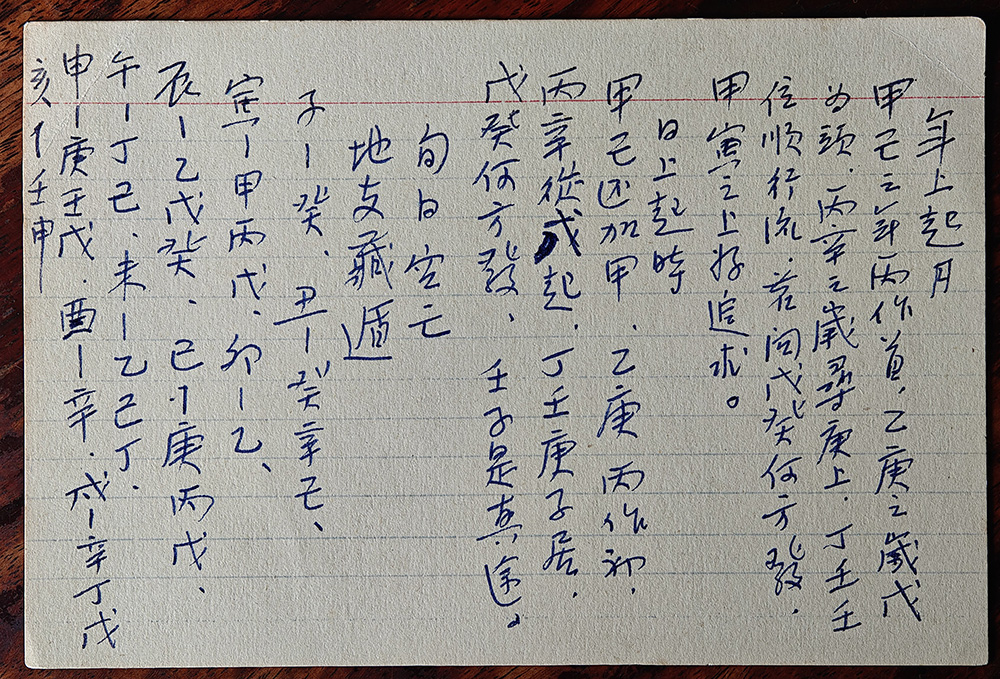 年上起月
甲己之年丙作首，乙庚之歲戊
为頭．丙辛之歲尋庚上．丁壬壬
位順行流．若問戊癸何方發．
甲寅之上好追求。
日上起時
甲己还加甲、乙庚丙作初．
丙辛從戊起．丁壬庚子居．
戊癸何方發、壬子是真途。
旬日空亡
地支藏遁
子－癸、丑－癸辛己、
寅－甲丙戊、卯－乙、
辰－乙戊癸、巳－庚丙戊、
午－丁己、未－乙己丁．
申－庚壬戊．酉－辛．戌－辛丁戊
亥－壬甲